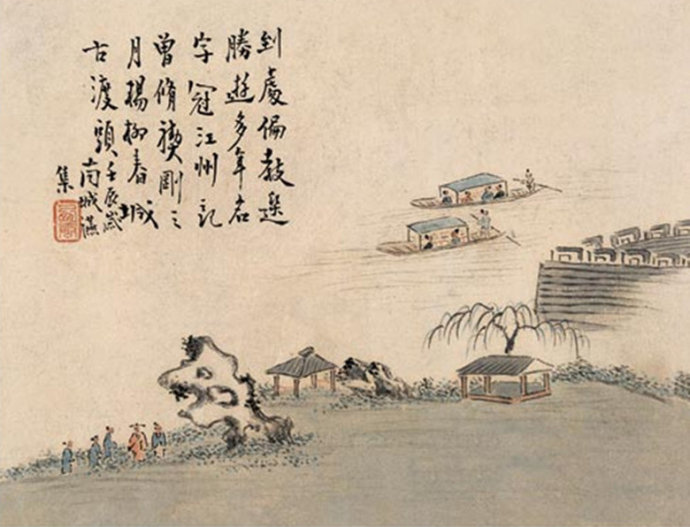 到處偏教選
勝遊多年名
字冠江州記
曾脩禊剛三
月楊柳春城
古渡頭壬辰歲
南城讌
集